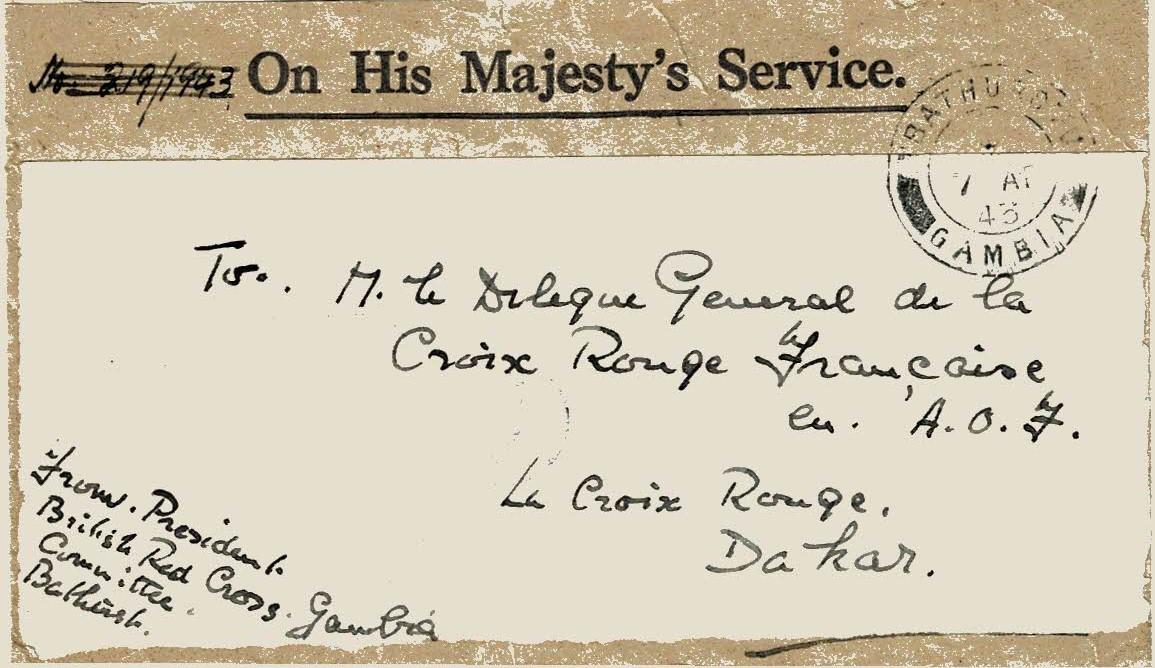 No 219/1943 On His Majesty's Service.
BATHURST
7 AP
43
GAMBIA
To. M. le Delegue General de la
Croix Rouge Française
en. A.O.F.
La Croix Rouge.
Dakar.
From. President.
British Red Cross.
Committee. Gambia
Bathurst.